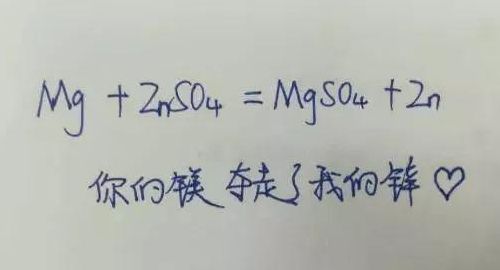 Mg + ZnSO4 = MgSO4 + Zn
你的镁夺走了我的锌♡